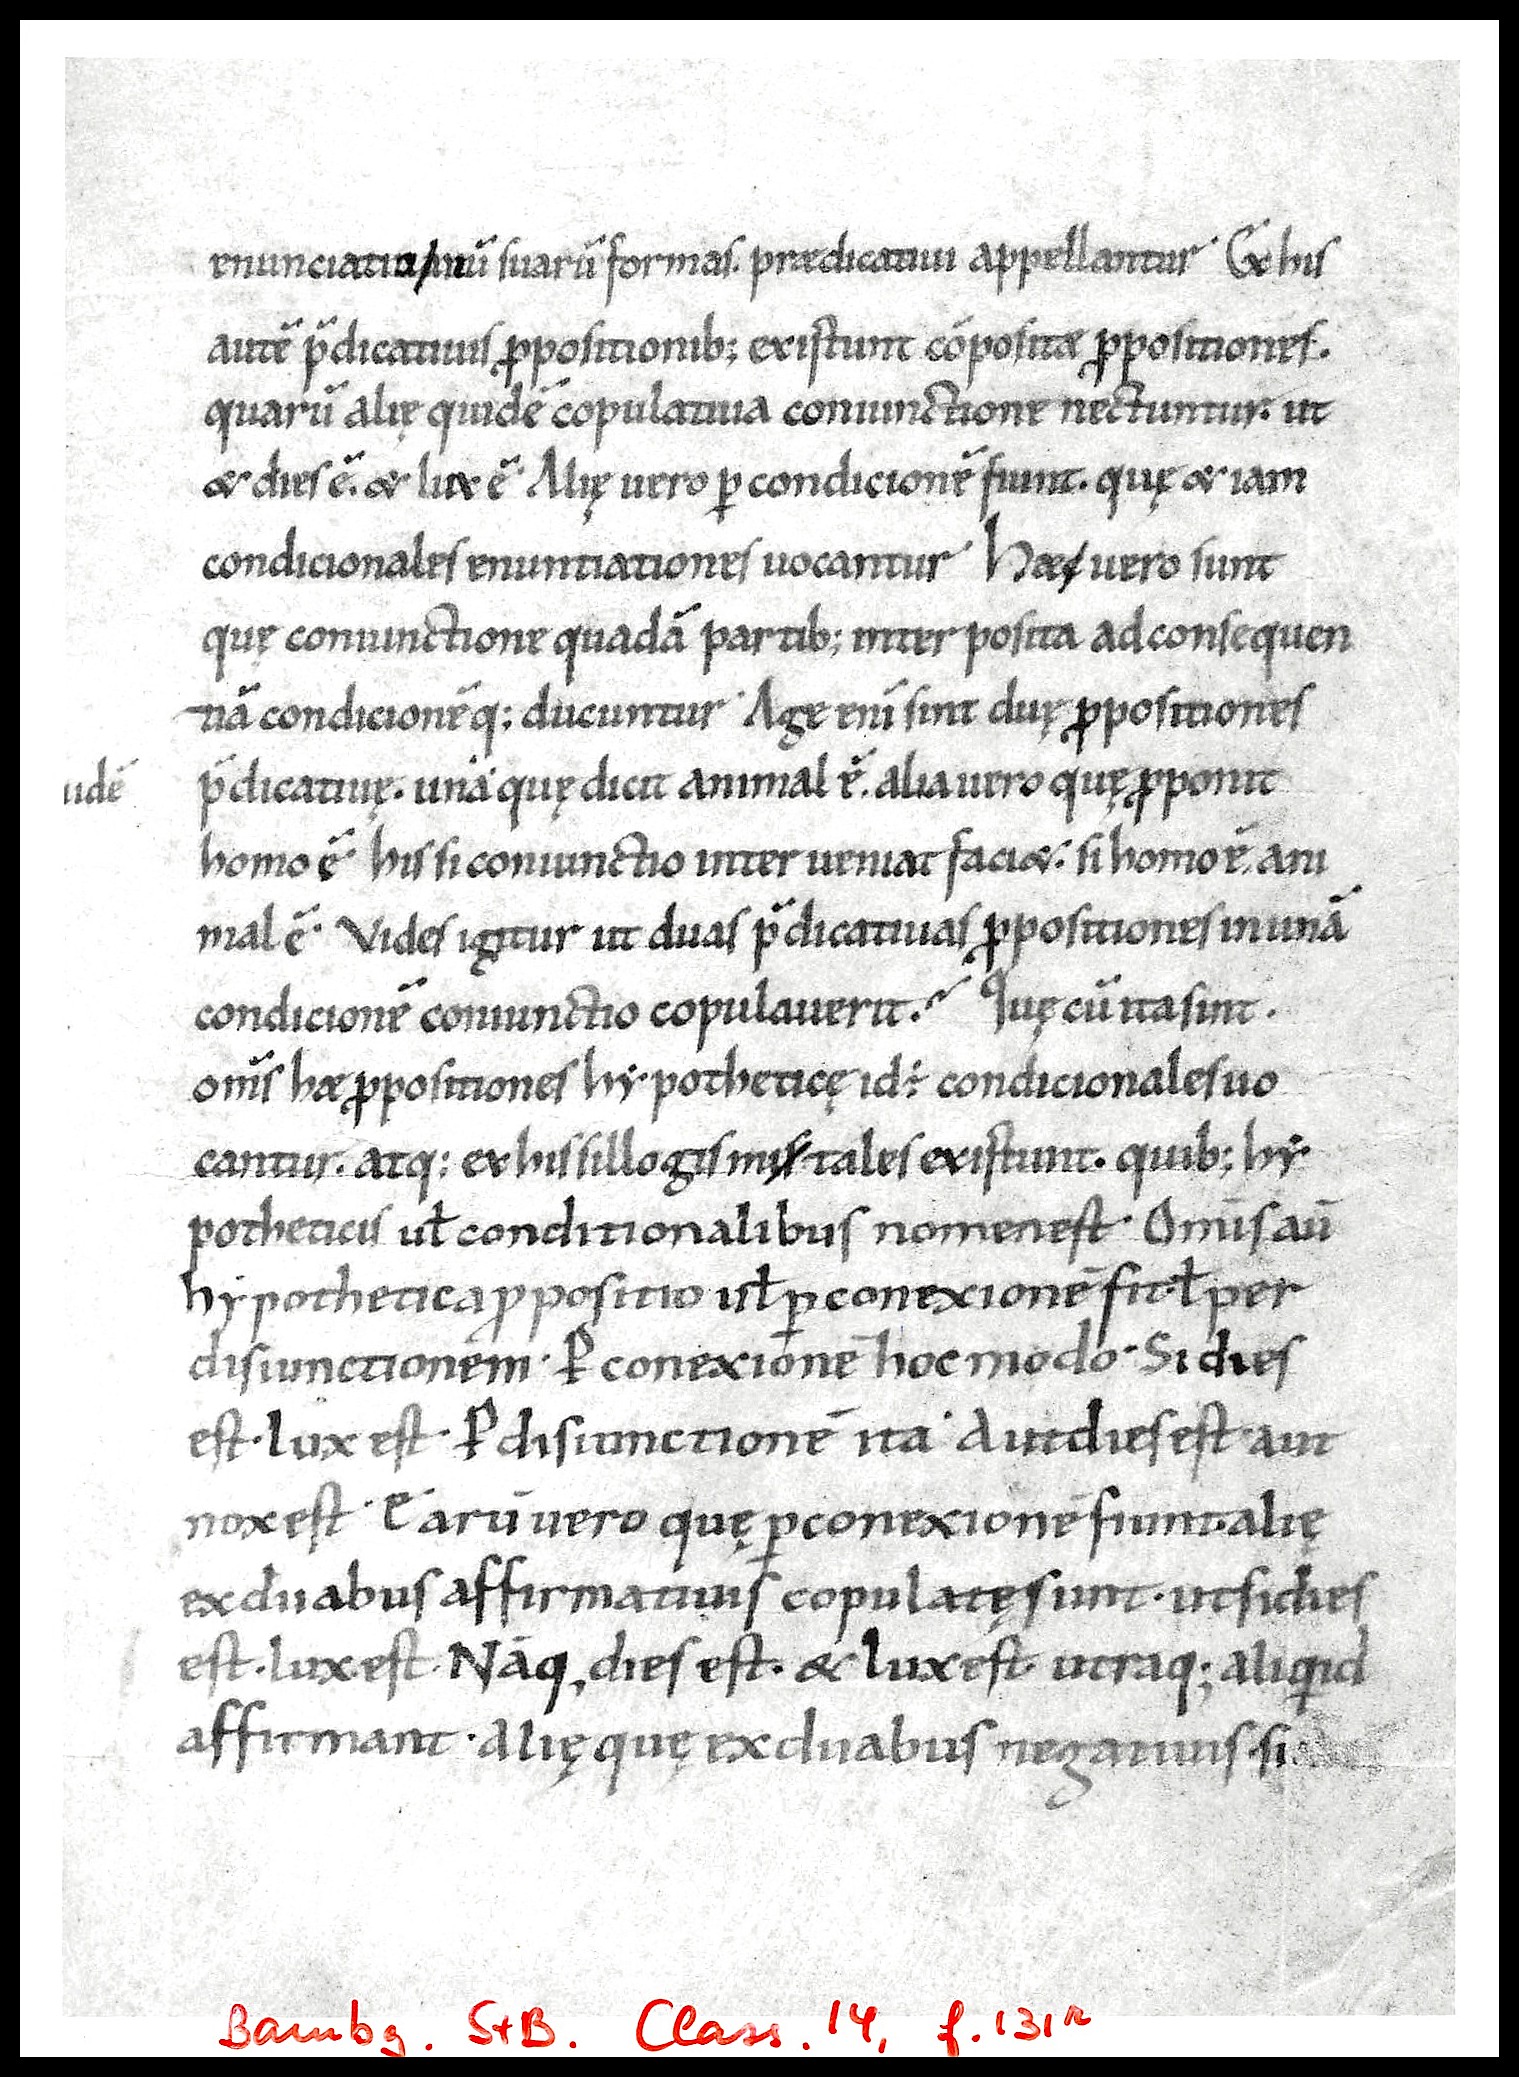 enunciatiuanũ suarũ formas. prædicatiui appellantur· Ex his
autẽ p̃dicatiuis ꝓpositionib; existunt cõpositæ ꝓpositiones.
quarũ alię quidẽ copulatiua coniunctione nectuntur. ut
& dies ẽ. & lux ẽ· Alię uero ꝑ condicionẽ fiunt. quę & iam
condicionales enuntiationes uocantur· Hae uero sunt
quę coniunctione quadã partib; inter posita ad consequen
tiã condicionẽq; ducuntur· Age enĩ sint duę ꝓpositiones
p̃dicatiuę. una quę dicit animal ẽ. alia uero quę ꝓponit
udẽ
homo ẽ· his si coniunctio inter ueniat faci&. si homo ẽ. ani
mal ẽ· Vides igitur ut duas p̃dicatiuas ꝓpositiones in unã
condicionẽ coniunctio copulauerit. Quę cũ ita sint.
om̃s hæ ꝓpositiones hẏpotheticę id ÷ condicionales uo
cantur. atq; ex his sillogismi tales existunt. quib; hẏ
potheticis uł conditionalibus nomen est· Om̄is aū
hẏpothetica ꝓpositio uł ꝑ conexionē fit· ł per
disiunctionem· Ꝑ conexionē hoc modo· Si dies
est· lux est· Ꝑ disiunctionē ita· Aut dies est· aut
nox est· Earū uero quę ꝑ conexionē fiunt· alię
ex duabus affirmatiuis copulatę sunt· ut si dies
est· lux est· Nāq, dies est· & lux est· utraq; aliquid
affirmant· Alię quę ex duabus negatiuis· si
Bambg. StB. Class. 14, f. 131r